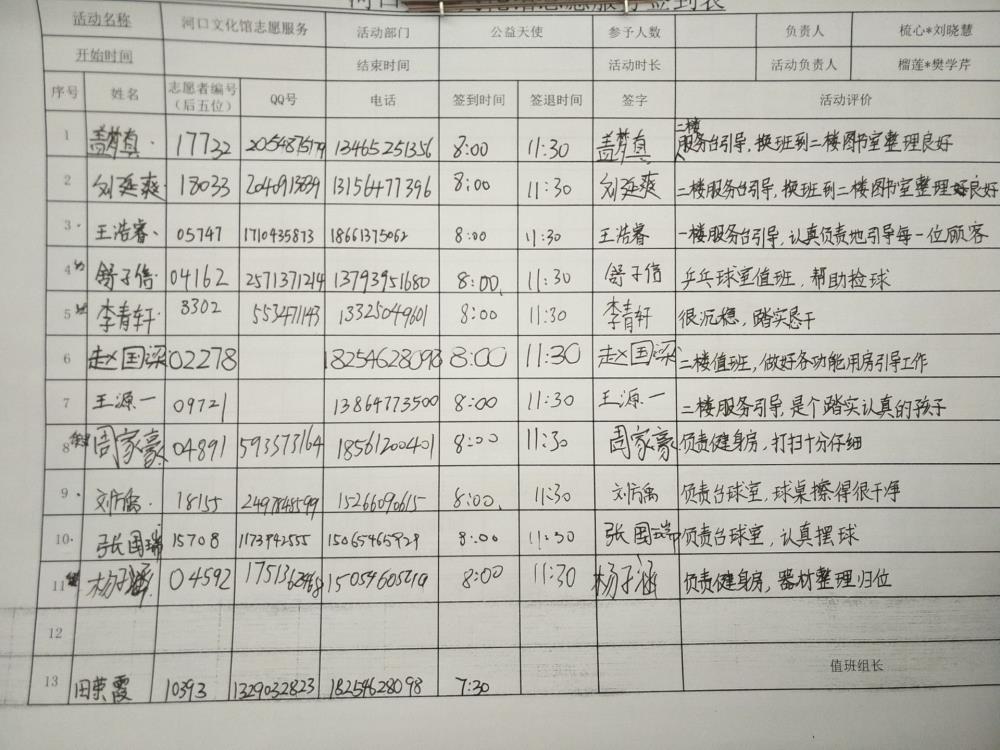 活动名称 河口文化馆志愿服务 活动部门 公益天使 参予人数 负责人 梳心*刘晓慧
开始时间 结束时间 活动时长 活动负责人 榴莲*樊学芹
序号 姓名 志愿者编号 QQ号 电话 签到时间 签退时间 签字 活动评价
（后五位）
二楼
1 盖梦真 17732 2054875179 13465251356 8:00 11:30 盖梦真 服务台引导,换班到二楼图书室整理良好
2 刘延爽 18033 2040913839 13156477396 8:00 11:30 刘延爽 二楼服务台引导,换班到二楼图书室整理良好
3 王浩睿 05747 1710435873 18661375062 8:00 11:30 王浩睿 一楼服务台引导,认真负责地引导每一位顾客
4 舒子信 04162 2571371214 13793951680 8:00 11:30 舒子信 乒乓球室值班,帮助捡球
5 李青轩 8302 553471143 13325049601 8:00 11:30 李青轩 很沉稳,踏实恳干
6 赵国深 02278 18254628098 8:00 11:30 赵国深 二楼值班,做好各功能用房引导工作
7 王源一 09721 13864773500 8:00 11:30 王源一 二楼服务引导,是个踏实认真的孩子
8 周家豪 04891 593573164 18561200401 8:00 11:30 周家豪 负责健身房,打扫十分仔细
9 刘方禹 18155 2497848599 15266090615 8:00 11:30 刘方禹 负责台球室,球桌擦得很干净
10 张国瑞 15708 1173942555 15065465929 8:00 11:30 张国瑞 负责台球室,认真摆球
11 杨子涵 04592 15054605419 8:00 11:30 杨子涵 负责健身房,器材整理归位
12
13 田荣霞 10393 1329032823 18254628098 7:30 值班组长